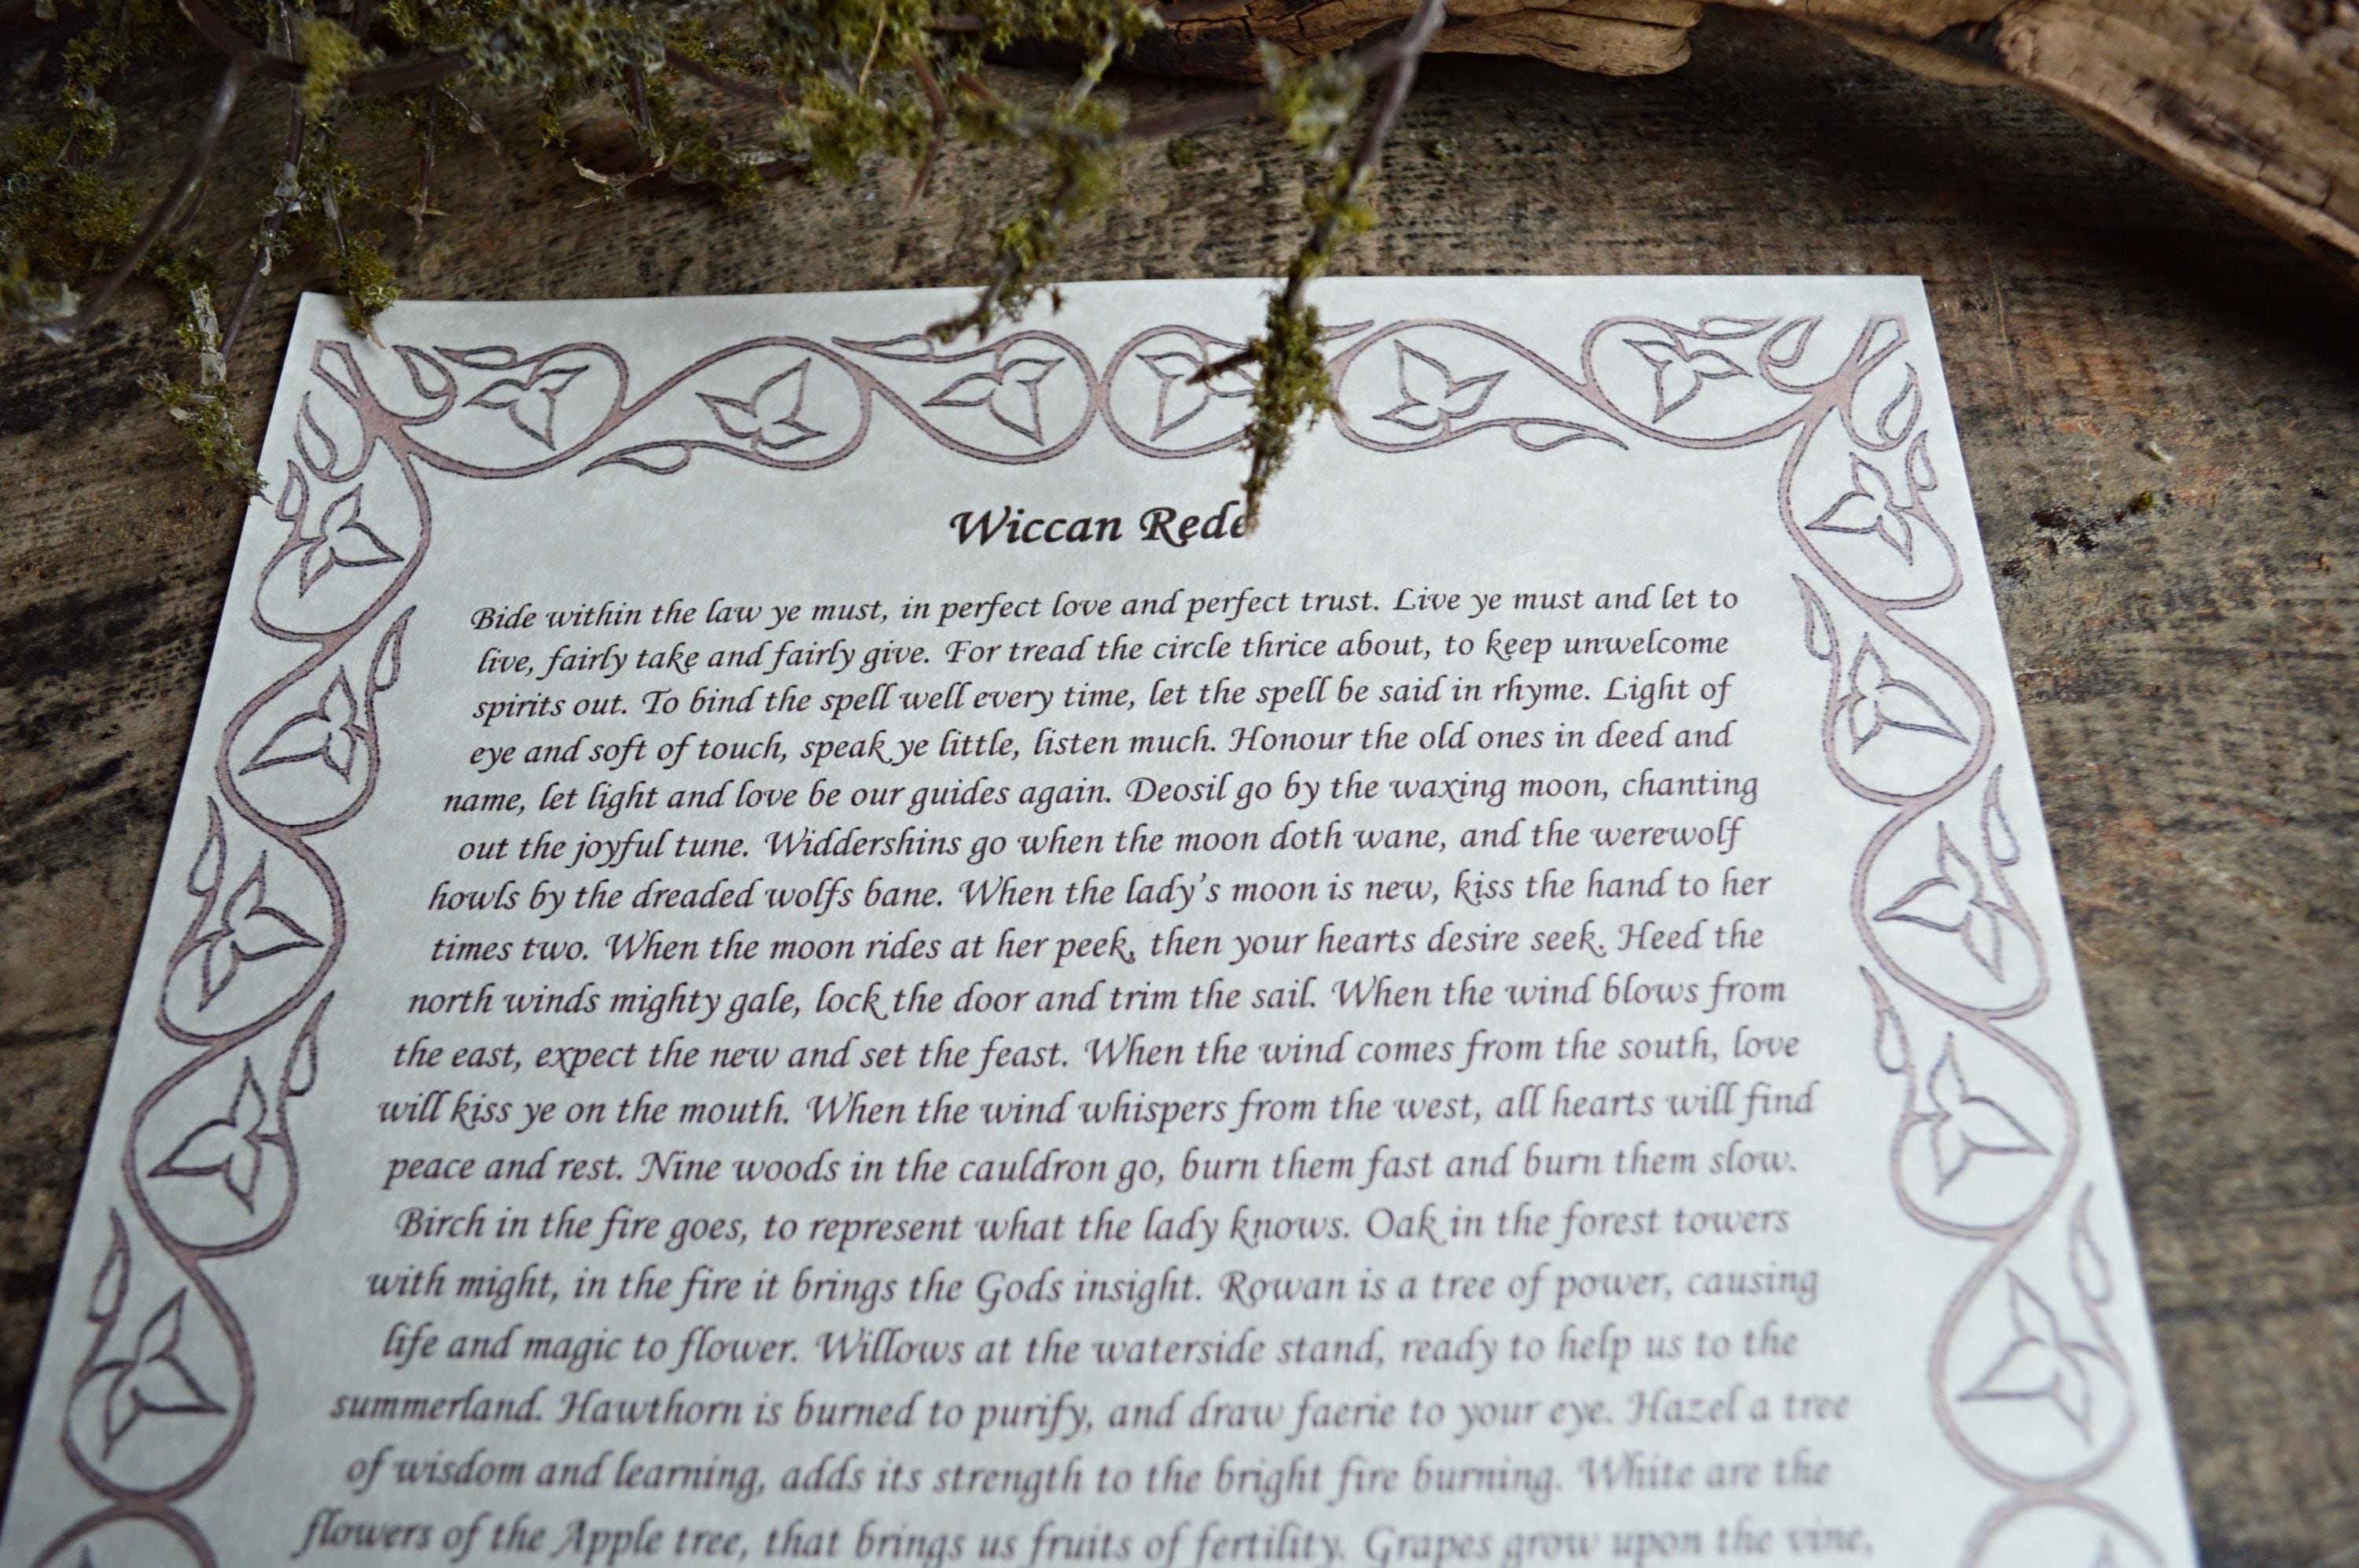 Wiccan Rede
Bide within the law ye must, in perfect love and perfect trust. Live ye must and let to
live, fairly take and fairly give. For tread the circle thrice about, to keep unwelcome
spirits out. To bind the spell well every time, let the spell be said in rhyme. Light of
eye and soft of touch, speak ye little, listen much. Honour the old ones in deed and
name, let light and love be our guides again. Deosil go by the waxing moon, chanting
out the joyful tune. Widdershins go when the moon doth wane, and the werewolf
howls by the dreaded wolfs bane. When the lady's moon is new, kiss the hand to her
times two. When the moon rides at her peek, then your hearts desire seek. Heed the
north winds mighty gale, lock the door and trim the sail. When the wind blows from
the east, expect the new and set the feast. When the wind comes from the south, love
will kiss ye on the mouth. When the wind whispers from the west, all hearts will find
peace and rest. Nine woods in the cauldron go, burn them fast and burn them slow.
Birch in the fire goes, to represent what the lady knows. Oak in the forest towers
with might, in the fire it brings the Gods insight. Rowan is a tree of power, causing
life and magic to flower. Willows at the waterside stand, ready to help us to the
summerland. Hawthorn is burned to purify, and draw faerie to your eye. Hazel a tree
of wisdom and learning, adds its strength to the bright fire burning. White are the
flowers of the Apple tree, that brings us fruits of fertility. Grapes grow upon the vine,